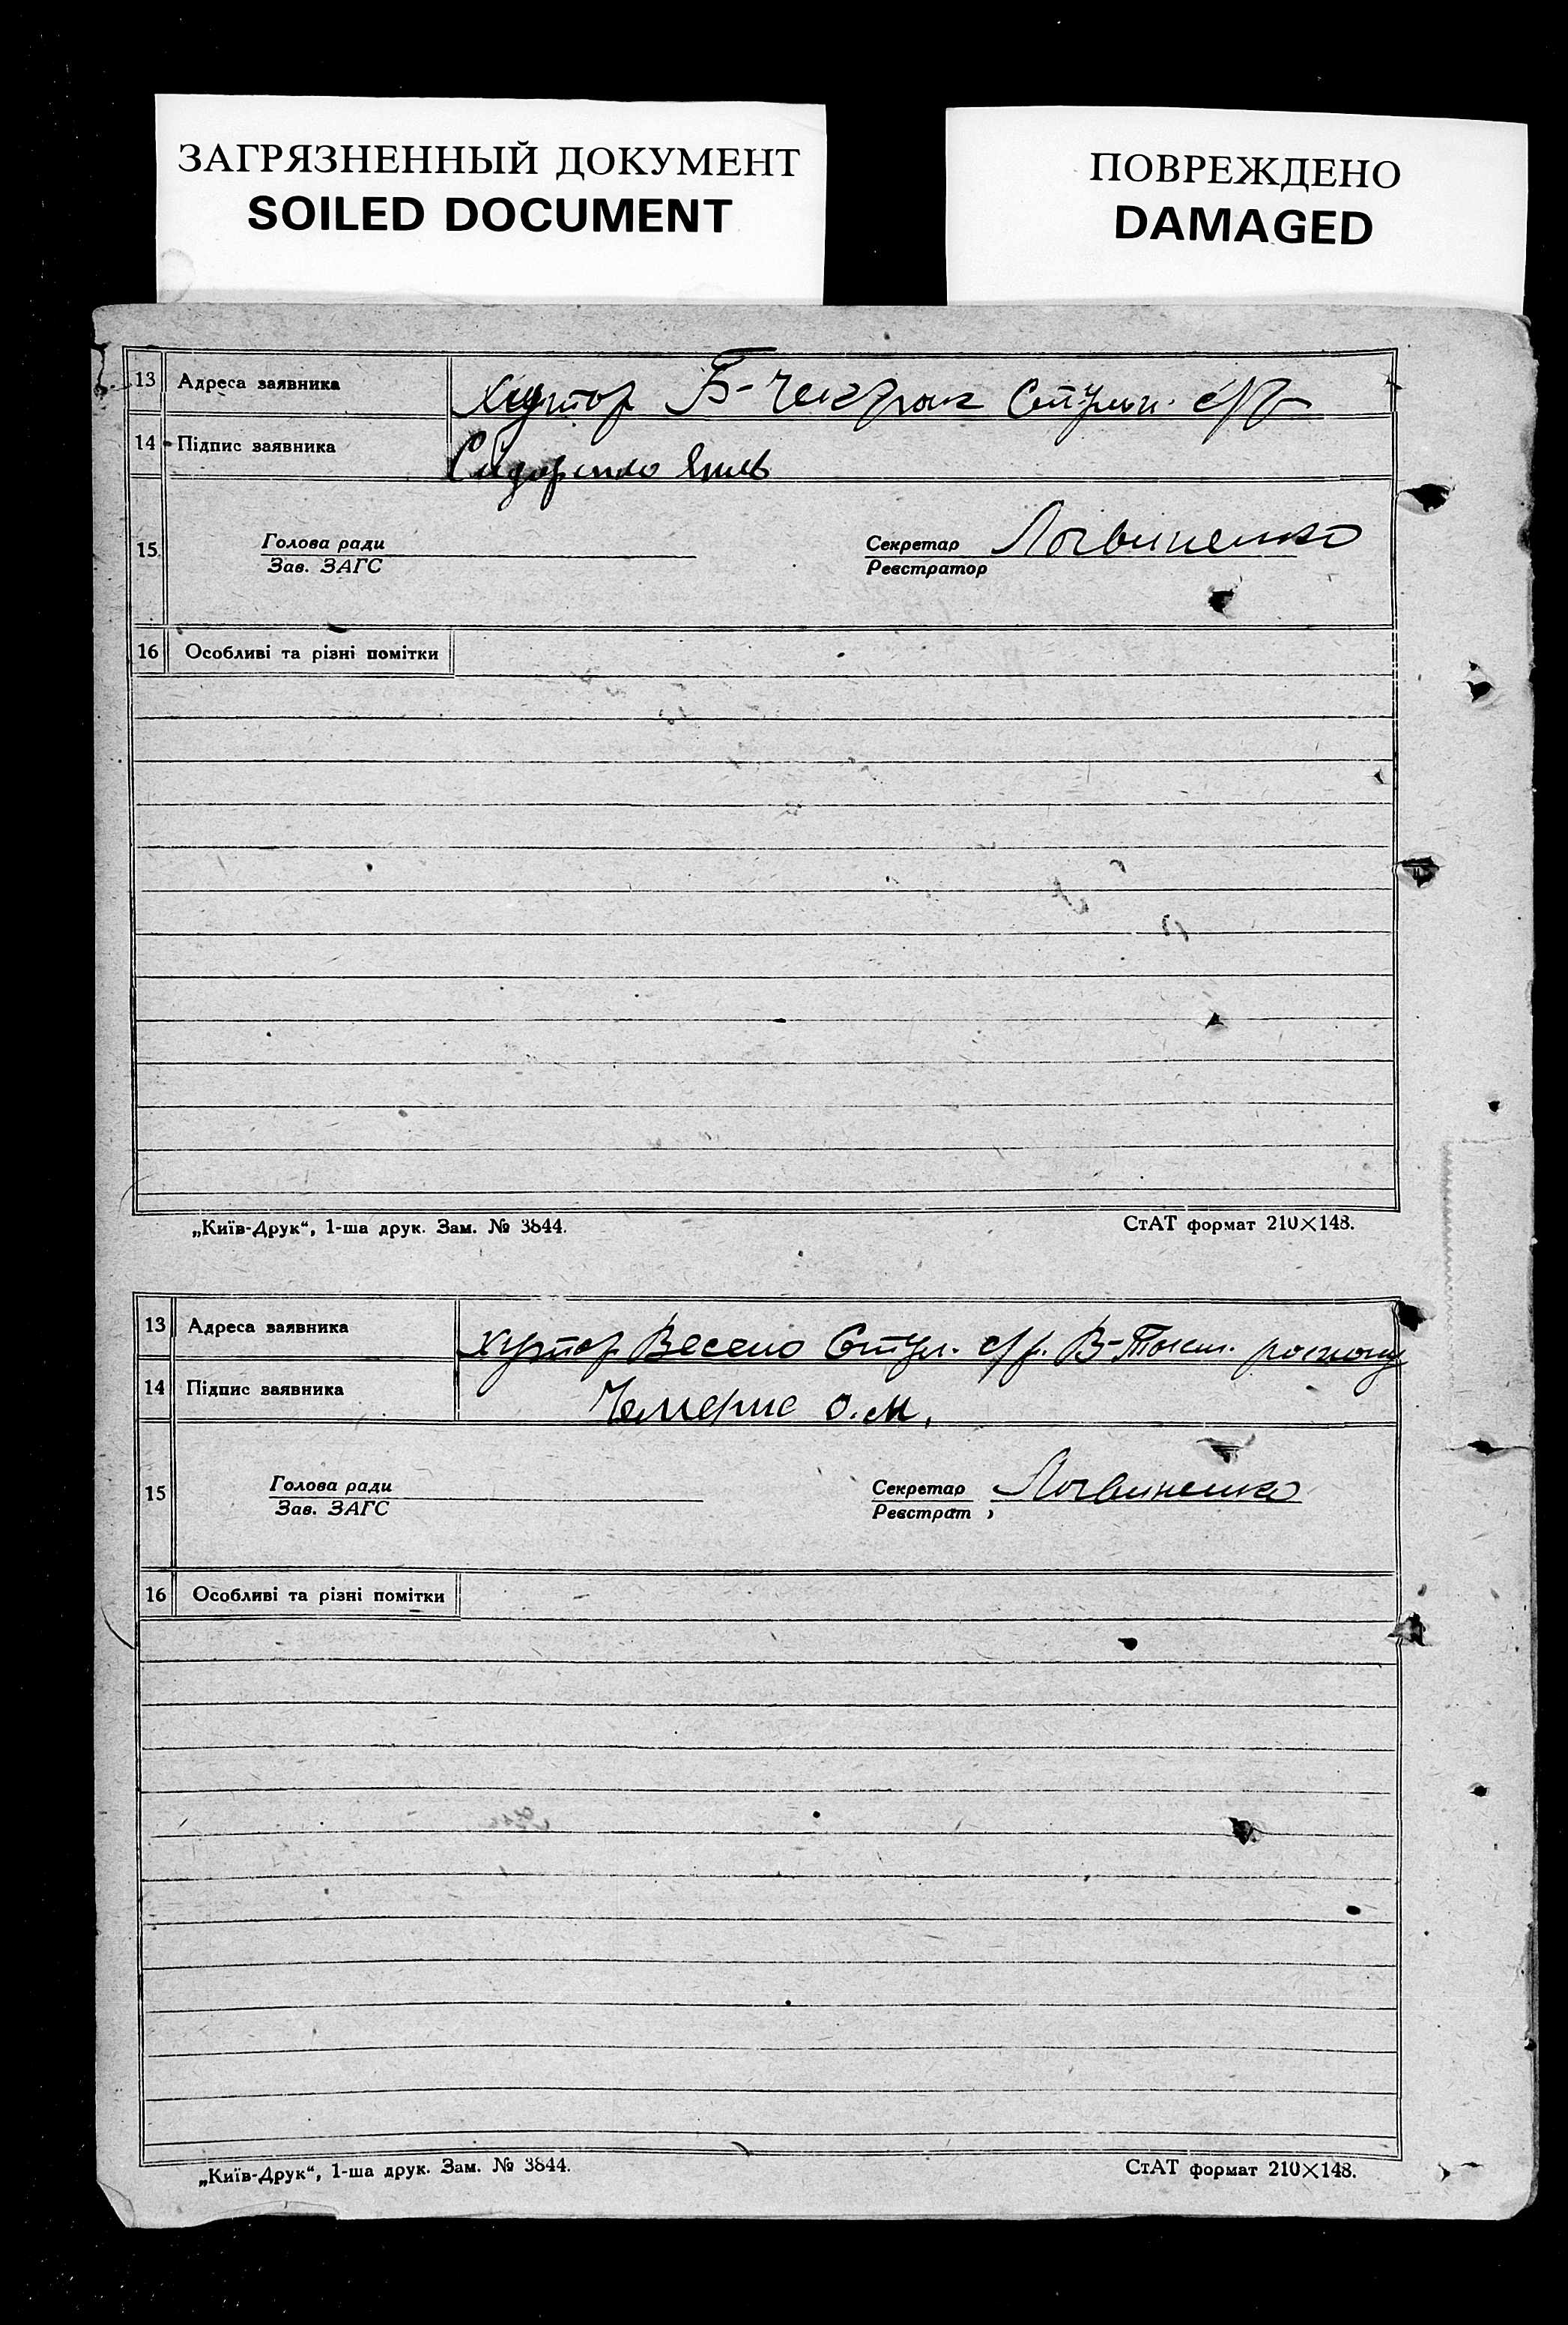 ЗАГРЯЗНЕННЫЙ ДОКУМЕНТ
SOILED DOCUMENT
ПОВРЕЖДЕНО
DAMAGED
13 Адреса заявника Хутор Б-Чекрак с/р
14 Підпис заявника
15 Голова ради
Зав. ЗАГС
Секретар Логвиненко
Реєстратор
16 Особливі та різні помітки
„Київ-Друк“, 1-ша друк. Зам. № 3844.
СтАТ формат 210×148.
13 Адреса заявника хутор Весело с/р. В-Токм. району
14 Підпис заявника Чемерис О.М.
15 Голова ради
Зав. ЗАГС
Секретар Логвиненко
Реєстрат
16 Особливі та різні помітки
„Київ-Друк“, 1-ша друк. Зам. № 3844.
СтАТ формат 210×148.